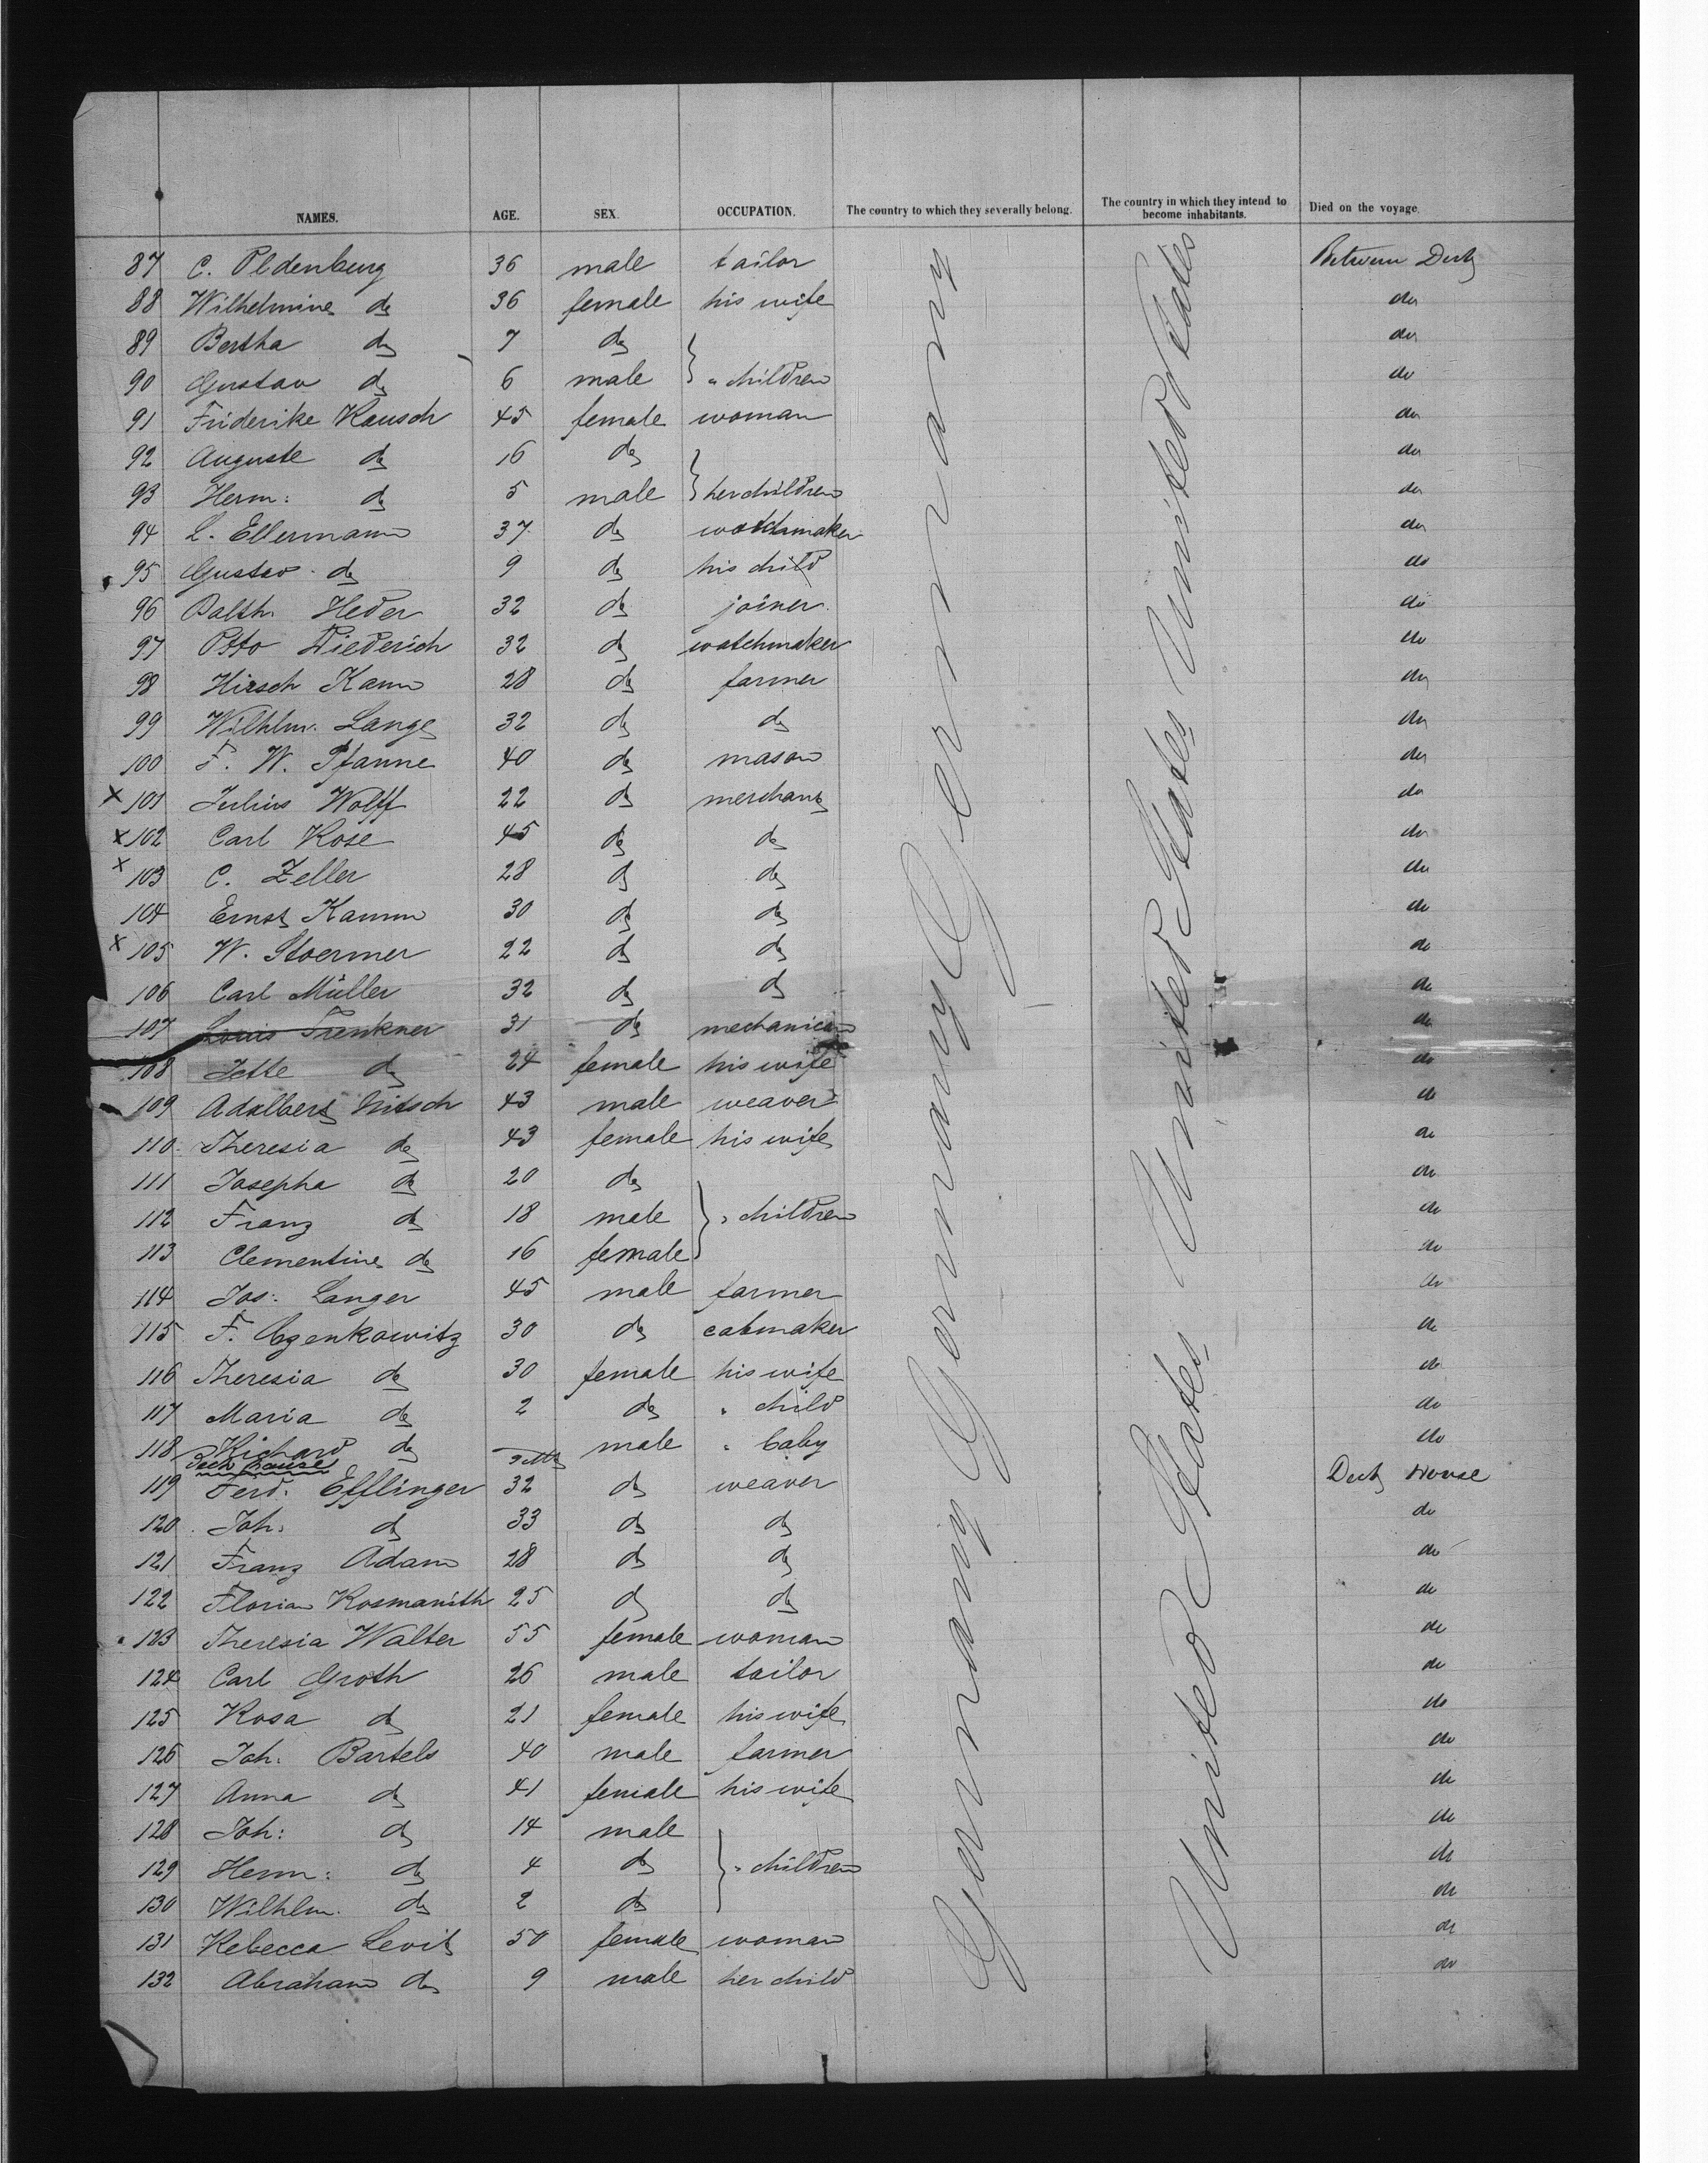 NAMES. AGE. SEX. OCCUPATION. The country to which they severally belong. The country in which they intend to become inhabitants. Died on the voyage.
87 C. Oldenburg 36 male tailor Between Deck
88 Wilhelmine do 36 female his wife do
89 Bertha do 7 do do
90 Gustav do 6 male } " children do
91 Friderike Rausch 45 female woman do
92 Auguste do 16 do do
93 Herm: do 5 male } her children do
94 L. Ellermann 37 do watchmaker do
95 Gustav do 9 do his child do
96 Balth. Heder 32 do joiner do
97 Otto Diederich 32 do watchmaker do
98 Hirsch Kann 28 do farmer do
99 Wilhlm. Lange 32 do do do
100 F. W. Pfanne 40 do mason do
x 101 Julius Wolff 22 do merchant do
x 102 Carl Rose 45 do do do
x 103 C. Zeller 28 do do do
104 Ernst Kamm 30 do do do
x 105 W. Stoermer 22 do do do
106 Carl Müller 32 do do do
107 Louis Trenkner 31 do mechanican do
108 Jette do 24 female his wife do
109 Adalbert Nitsch 43 male weaver do
110 Theresia do 43 female his wife do
111 Josepha do 20 do do
112 Franz do 18 male } " children do
113 Clementine do 16 female do
114 Jos: Langer 45 male farmer do
115 F. 30 do cabmaker do
116 Theresia do 30 female his wife do
117 Maria do 2 do " child do
118 Richard do male " baby do
Deck house
119 Ferd. Efflinger 32 do weaver Deck House
120 Joh. do 33 do do do
121 Franz Adam 28 do do do
122 Florian Rosmanith 25 do do do
123 Theresia Walter 55 female woman do
124 Carl Groth 26 male tailor do
125 Rosa do 21 female his wife do
126 Joh: Bartels 40 male farmer do
127 Anna do 41 female his wife do
128 Joh: do 14 male do
129 Herm: do 4 do } " children do
130 Wilhlm. do 2 do do
131 Rebecca Levit 50 female woman do
132 Abraham do 9 male her child do
Germany Germany Germany
United States United States United States